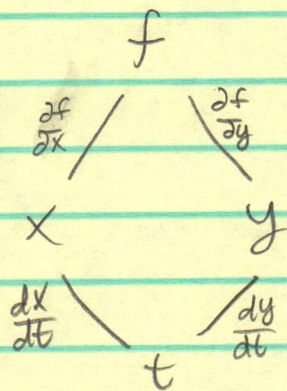 f
∂f/∂x ∂f/∂y
x y
dx/dt dy/dt
t